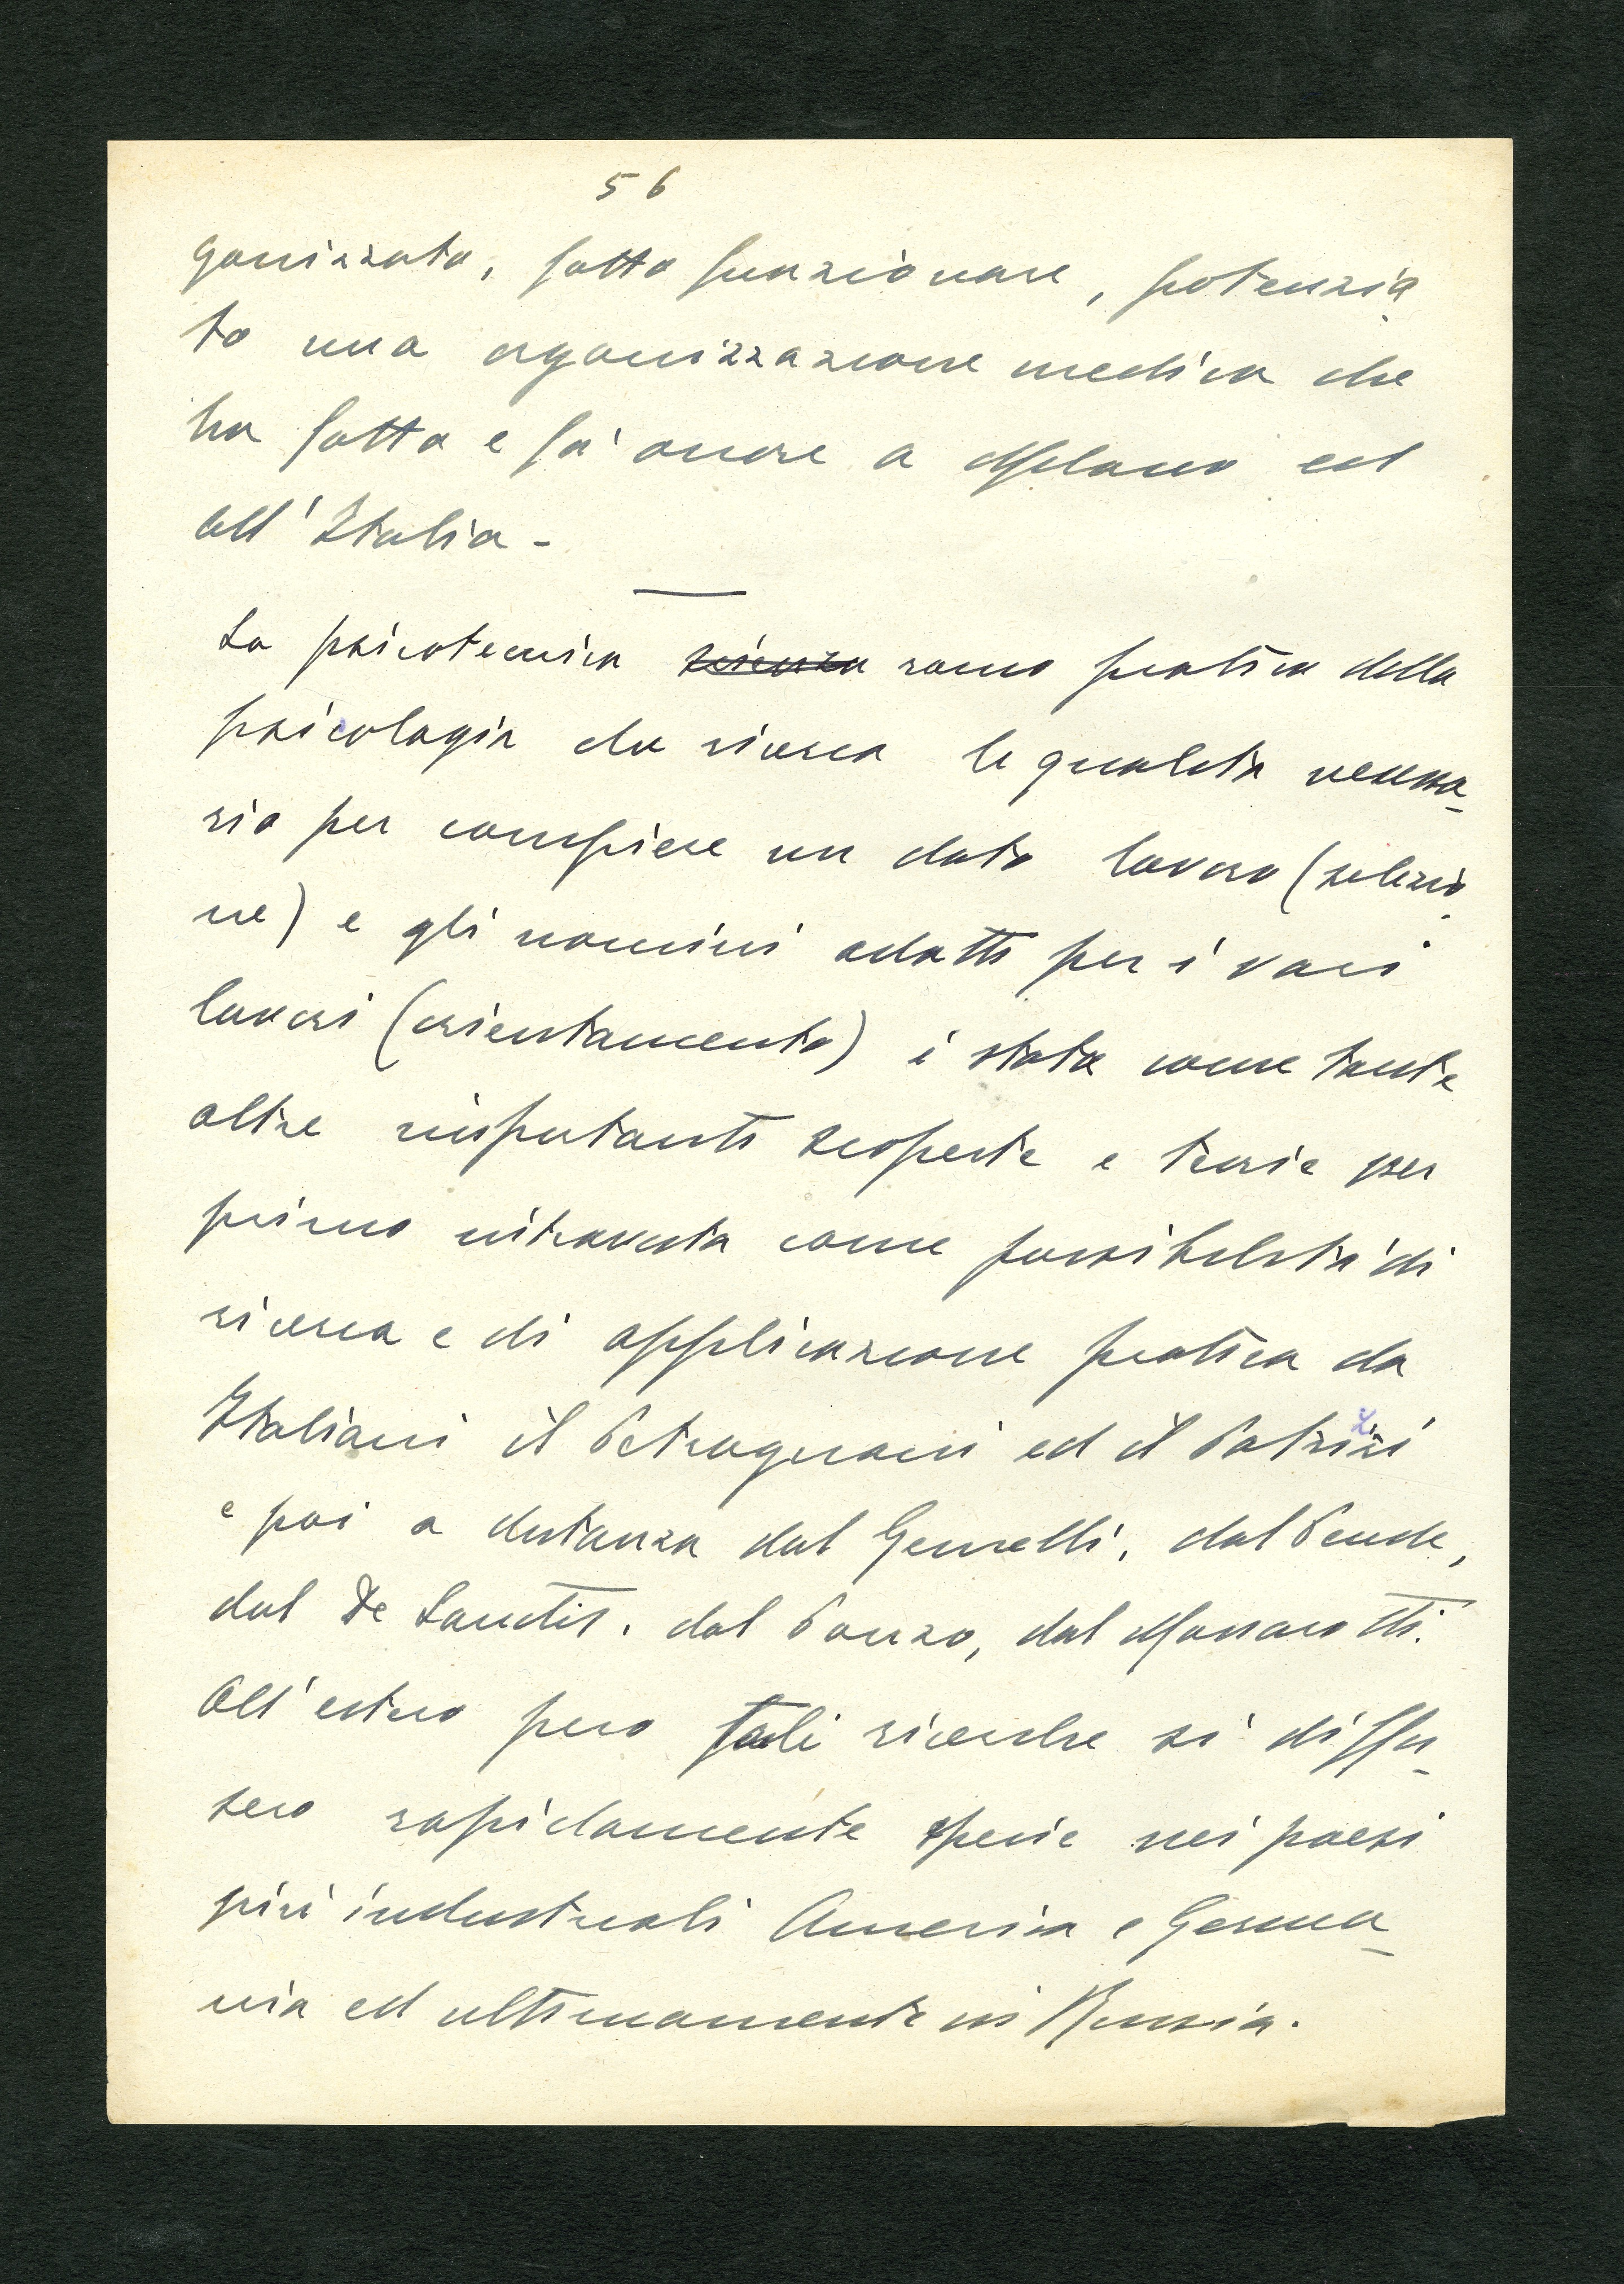 56
ganizzato, fatto funzionare, potenzia
to una organizzazione medica che
ha fatto e fa' onore a Milano ed
all'Italia -
La psicotecnica scienza ramo pratico della
psicologia che ricerca le qualità necessa-
rie per compiere un dato lavoro (selezio
ne) e gli uomini adatti per i vari
lavori (orientamento) è stata come tante
altre importanti scoperte e teorie per
primo intravista come possibilità di
ricerca e di applicazione pratica da
Italiani il Petragnani ed il Patrizi
e poi a distanza dal Gemelli, dal Pende,
dal De Sanctis, dal Ponzo, dal Massarotti.
All'estero pero tali ricerche si diffu-
sero rapidamente specie nei paesi
più industriali America e Germa-
nia ed ultimamente in Russia.